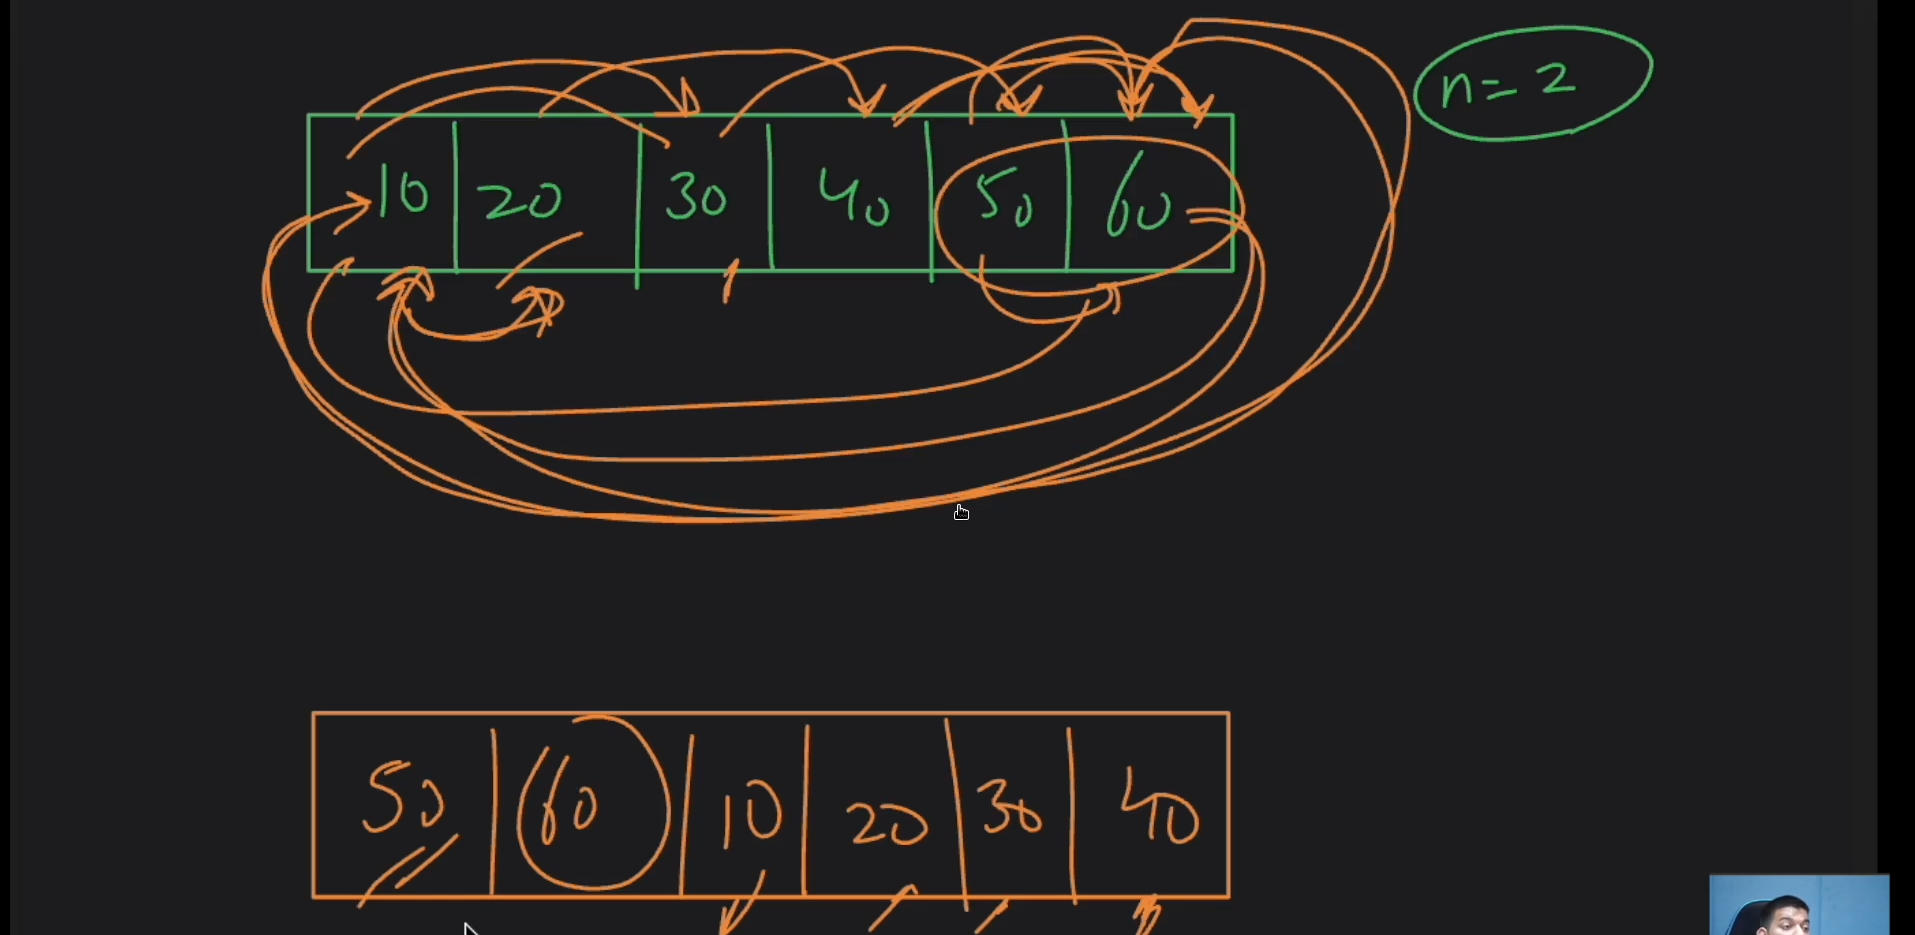 n = 2
10 20 30 40 50 60
50 60 10 20 30 40